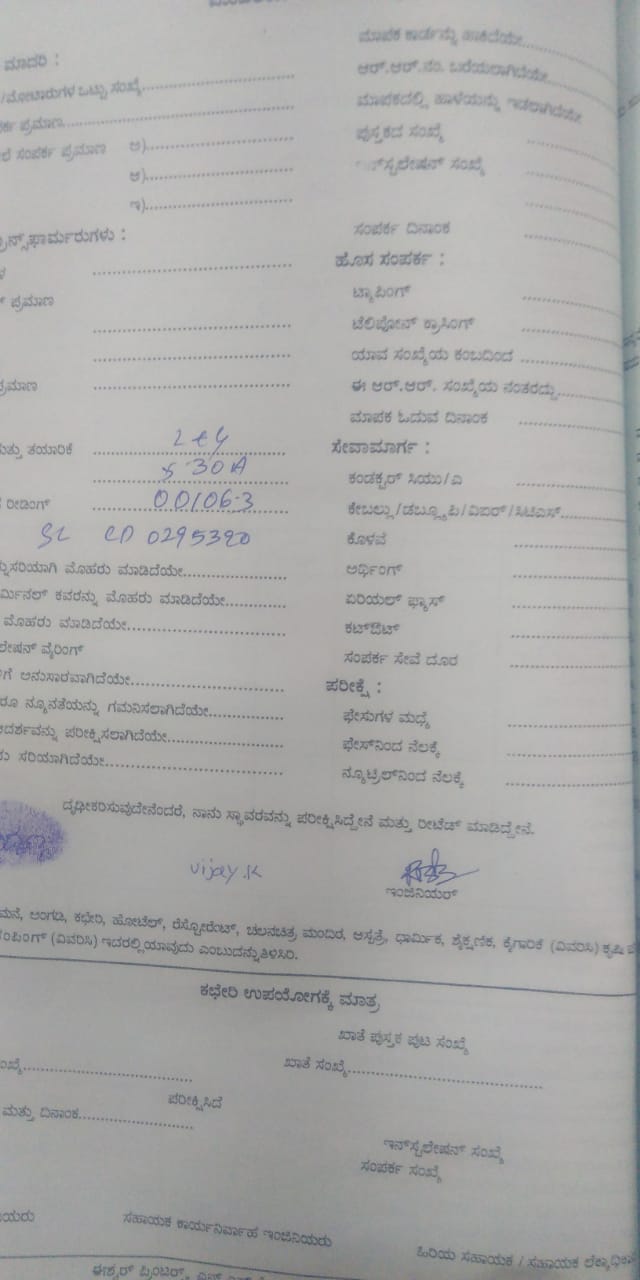 ಮಾಪಕ ಕಾರ್ಡನ್ನು ಹಾಕಿದೆಯೇ
ಮಾದರಿ :
ಆರ್.ಆರ್.ನಂ. ಬರೆಯಲಾಗಿದೆಯೇ
/ಮೋಟಾರುಗಳ ಒಟ್ಟು ಸಂಖ್ಯೆ
ಮಾಪಕದಲ್ಲಿ ಹಾಳೆಯನ್ನು ಇಡಲಾಗಿದೆಯೇ
ಪ್ರಮಾಣ
ಪುಸ್ತಕದ ಸಂಖ್ಯೆ
ಸಂಪರ್ಕ ಪ್ರಮಾಣ ಅ)
ಸ್ಟಲೇಷನ್ ಸಂಖ್ಯೆ
ಆ)
ಇ)
ಸಂಪರ್ಕ ದಿನಾಂಕ
ನ್ಸ್‌ಫಾರ್ಮರುಗಳು :
ಹೊಸ ಸಂಪರ್ಕ :
ಟ್ಯಾಪಿಂಗ್
ಪ್ರಮಾಣ
ಟೆಲಿಫೋನ್ ಕ್ರಾಸಿಂಗ್
ಯಾವ ಸಂಖ್ಯೆಯ ಕಂಬದಿಂದ
ಪ್ರಮಾಣ
ಈ ಆರ್.ಆರ್. ಸಂಖ್ಯೆಯ ನಂತರದ್ದು
ಮಾಪಕ ಓದುವ ದಿನಾಂಕ
ಮತ್ತು ತಯಾರಿಕೆ
ಸೇವಾಮಾರ್ಗ :
30A
ಕಂಡಕ್ಟರ್ ಸಿಯು/ಎ
ರೀಡಿಂಗ್ 00106.3
ಕೇಬಲ್ಲು/ಡಬ್ಲ್ಯೂಪಿ/ವಿಐರ್/ಸಿಟಿಎಸ್
0295320
ಕೊಳವೆ
ಸರಿಯಾಗಿ ಮೊಹರು ಮಾಡಿದೆಯೇ
ಅರ್ಥಿಂಗ್
ರ್ಮಿನಲ್ ಕವರನ್ನು ಮೊಹರು ಮಾಡಿದೆಯೇ
ಏರಿಯಲ್ ಫ್ಯೂಸ್
ಮೊಹರು ಮಾಡಿದೆಯೇ
ಕಟ್‌ಔಟ್
ಲೇಷನ್ ವೈರಿಂಗ್
ಸಂಪರ್ಕ ಸೇವೆ ದೂರ
ಗೆ ಅನುಸಾರವಾಗಿದೆಯೇ
ಪರೀಕ್ಷೆ :
ನ್ಯೂನತೆಯನ್ನು ಗಮನಿಸಲಾಗಿದೆಯೇ
ಫೇಸುಗಳ ಮಧ್ಯೆ
ಆದರ್ಶವನ್ನು ಪರೀಕ್ಷಿಸಲಾಗಿದೆಯೇ
ಫೇಸ್‌ನಿಂದ ನೆಲಕ್ಕೆ
ಸರಿಯಾಗಿದೆಯೇ
ನ್ಯೂಟ್ರಲ್‌ನಿಂದ ನೆಲಕ್ಕೆ
ದೃಢೀಕರಿಸುವುದೇನೆಂದರೆ, ನಾನು ಸ್ಥಾವರವನ್ನು ಪರೀಕ್ಷಿಸಿದ್ದೇನೆ ಮತ್ತು ರೀಟೆಡ್ ಮಾಡಿದ್ದೇನೆ.
vijay.K
ಇಂಜಿನಿಯರ್
ಮನೆ, ಅಂಗಡಿ, ಕಛೇರಿ, ಹೋಟೆಲ್, ರೆಸ್ಟೋರೆಂಟ್, ಚಲನಚಿತ್ರ ಮಂದಿರ, ಆಸ್ಪತ್ರೆ, ಧಾರ್ಮಿಕ, ಶೈಕ್ಷಣಿಕ, ಕೈಗಾರಿಕೆ (ವಿವರಿಸಿ) ಕೃಷಿ
ಪಂಪಿಂಗ್ (ವಿವರಿಸಿ) ಇದರಲ್ಲಿಯಾವುದು ಎಂಬುದನ್ನು ತಿಳಿಸಿರಿ.
ಕಛೇರಿ ಉಪಯೋಗಕ್ಕೆ ಮಾತ್ರ
ಖಾತೆ ಪುಸ್ತಕ ಪುಟ ಸಂಖ್ಯೆ
ಖಾತೆ ಸಂಖ್ಯೆ
ಪರೀಕ್ಷಿಸಿದೆ
ಮತ್ತು ದಿನಾಂಕ
ಇನ್‌ಸ್ಟಲೇಷನ್ ಸಂಖ್ಯೆ
ಸಂಪರ್ಕ ಸಂಖ್ಯೆ
ಸಹಾಯಕ ಕಾರ್ಯನಿರ್ವಾಹ ಇಂಜಿನಿಯರು
ಹಿರಿಯ ಸಹಾಯಕ / ಸಹಾಯಕ ಲೆಕ್ಕಾಧಿಕಾ
ಈಶ್ವರ್ ಪ್ರಿಂಟರ್ಸ್